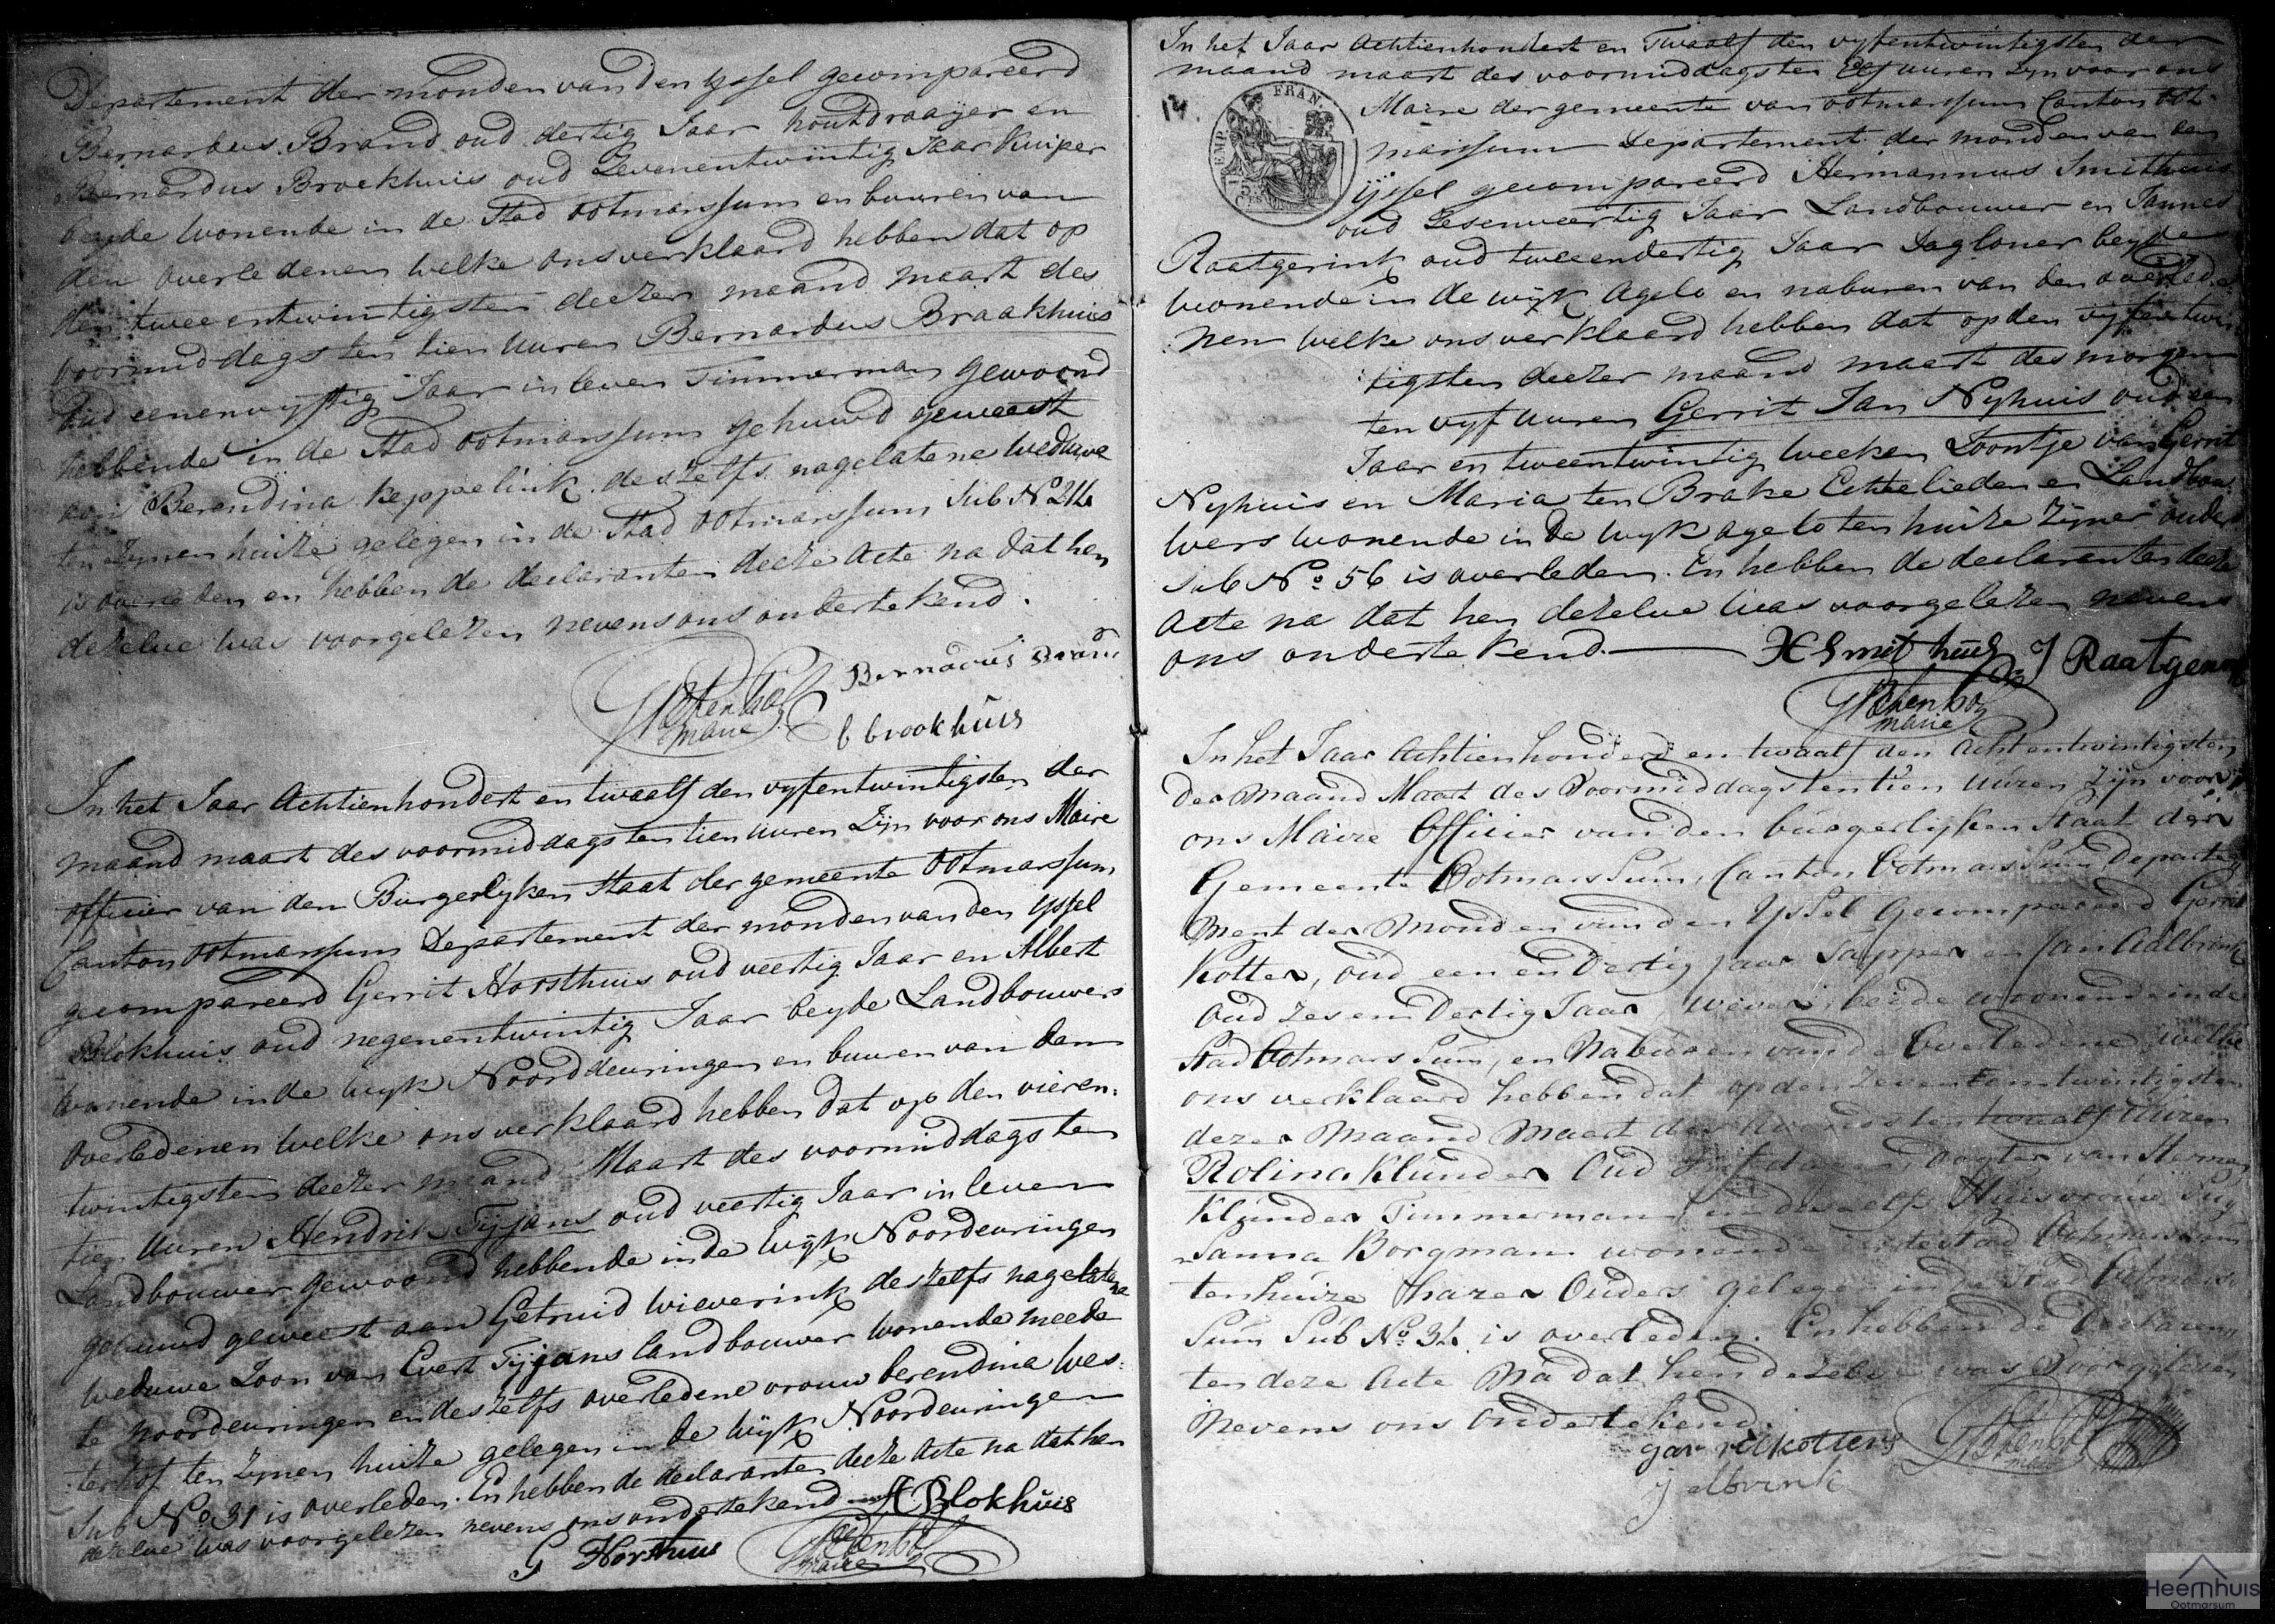 Departement der monden van den yssel gecompareerd
Bernardus Brand oud dertig Jaar houtdraayer en
Bernardus Broekhuis oud Zevenentwintig Jaar Kuiper
beyde wonende in de Stad Ootmarssum en buuren van
den overledenen welke ons verklaard hebben dat op
den tweeentwintigsten deezer maand maart des
voormiddags ten tien uuren Bernardus Braakhuis
oud eenenvyftig Jaar in leven Timmerman gewoond
hebbende in de Stad Ootmarssum gehuwd geweest
aan Berendina Keppelink deszelfs nagelatene weduwe
ten zynen huize gelegen in de Stad Ootmarssum Sub No 214
is overleden en hebben de declaranten deeze Acte na dat hen
dezelve was voorgelezen nevens ons ondertekend.
Bernadus Brand
maire
b brookhuis
In het Jaar Achtienhondert en twaalf den vyfentwintigsten der
maand maart des voormiddags ten tien uuren Zyn voor ons Maire
officier van den Burgerlyken Staat der gemeente Ootmarssum
Canton Ootmarssum Departement der monden van den yssel
gecompareerd Gerrit Horsthuis oud veertig Jaar en Albert
Blokhuis oud negenentwintig Jaar beyde Landbouwers
wonende in de wyk Noorddeuringen en buuren van den
overledenen welke ons verklaard hebben dat op den vieren:
twintigsten deezer maand Maart des voormiddags ten
tien uuren Hendrik Tijjans oud veertig Jaar in leven
Landbouwer gewoond hebbende in de wyk Noordeuringen
gehuwd geweest aan Getruid Wieverink deszelfs nagelatene
weduwe Zoon van Evert Tijjans landbouwer wonende meede
te noordeuringen en deszelfs overledene vrouw berendina wes:
terhof ten zynen huize gelegen in de wyk Noordeuringen
Sub No 31 is overleden. En hebben de declaranten deeze Acte na dat hen
dezelve was voorgelezen nevens ons ondertekend
A Blokhuis
G Horsthuis
maire
In het Jaar Achtienhondert en Twaalf den vyfentwintigsten der
maand maart des voormiddags ten Elf uuren zyn voor ons
14.
EMP. FRAN.
Maire der gemeente van Ootmarssum Canton Oot:
marssum Departement der monden van den
ijssel gecompareerd Hermannus Smithuis
oud Zesenveertig Jaar Landbouwer en Jannes
Raatgerink oud tweeendertig Jaar Dagloner beyde
wonende in de wyk Agelo en naburen van den overlede:
nen welke ons verklaard hebben dat op den vyfentwin
tigsten deezer maand maart des morgen
ten vyf uuren Gerrit Jan Nyhuis oud een
Jaar en tweentwintig weeken Zoontje van Gerrit
Nyhuis en Maria ten Brake Echtelieden en Landbou
wers wonende in de wyk agelo ten huize Zyner ouders
Sub No 56 is overleden. En hebben de declaranten deeze
Acte na dat hen dezelve was voorgelezen nevens
ons ondertekend.
H Smit huis J Raatgerink
maire
In het Jaar Achtienhonderd en twaalf den Achtentwintigsten
der Maand Maart des Voormiddags ten tien uuren Zyn voor
ons Maire Officier van den burgerlyken Staat der
Gemeente Ootmarssum, Canton Ootmarssum Departe
Ment der Monden van den Yssel Gecompareerd Gerrit
Kotter, oud een en Dertig Jaar Tapper en Jan Aalbrink
Oud Zesen Dertig Jaar Wever, beide woonende in de
Stad Ootmarssum, en Naburen van de Overledene welke
ons verklaard hebben dat op den Zevenentwintigsten
dezer Maand Maart des Avonds ten twaalf Uuren
Rolina Klunder Oud dagen Dogter van Herman
Klunder Timmerman en deszelfs Huisvrouw Su
Sanna Borgman wonende in de stad Ootmarssum
ten huize harer Ouders gelegen in de Stad Ootmars
Sum Sub No 34 is overleden. En hebben de Declaran
ten deze Acte Na dat hen dezelve was Voorgelezen
Nevens ons Ondertekend.
maire
Heemhuis
Ootmarsum